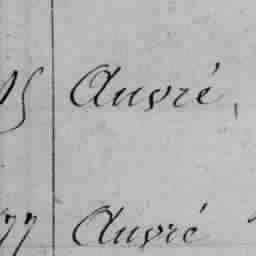 15 Auvré,
77 Auvré